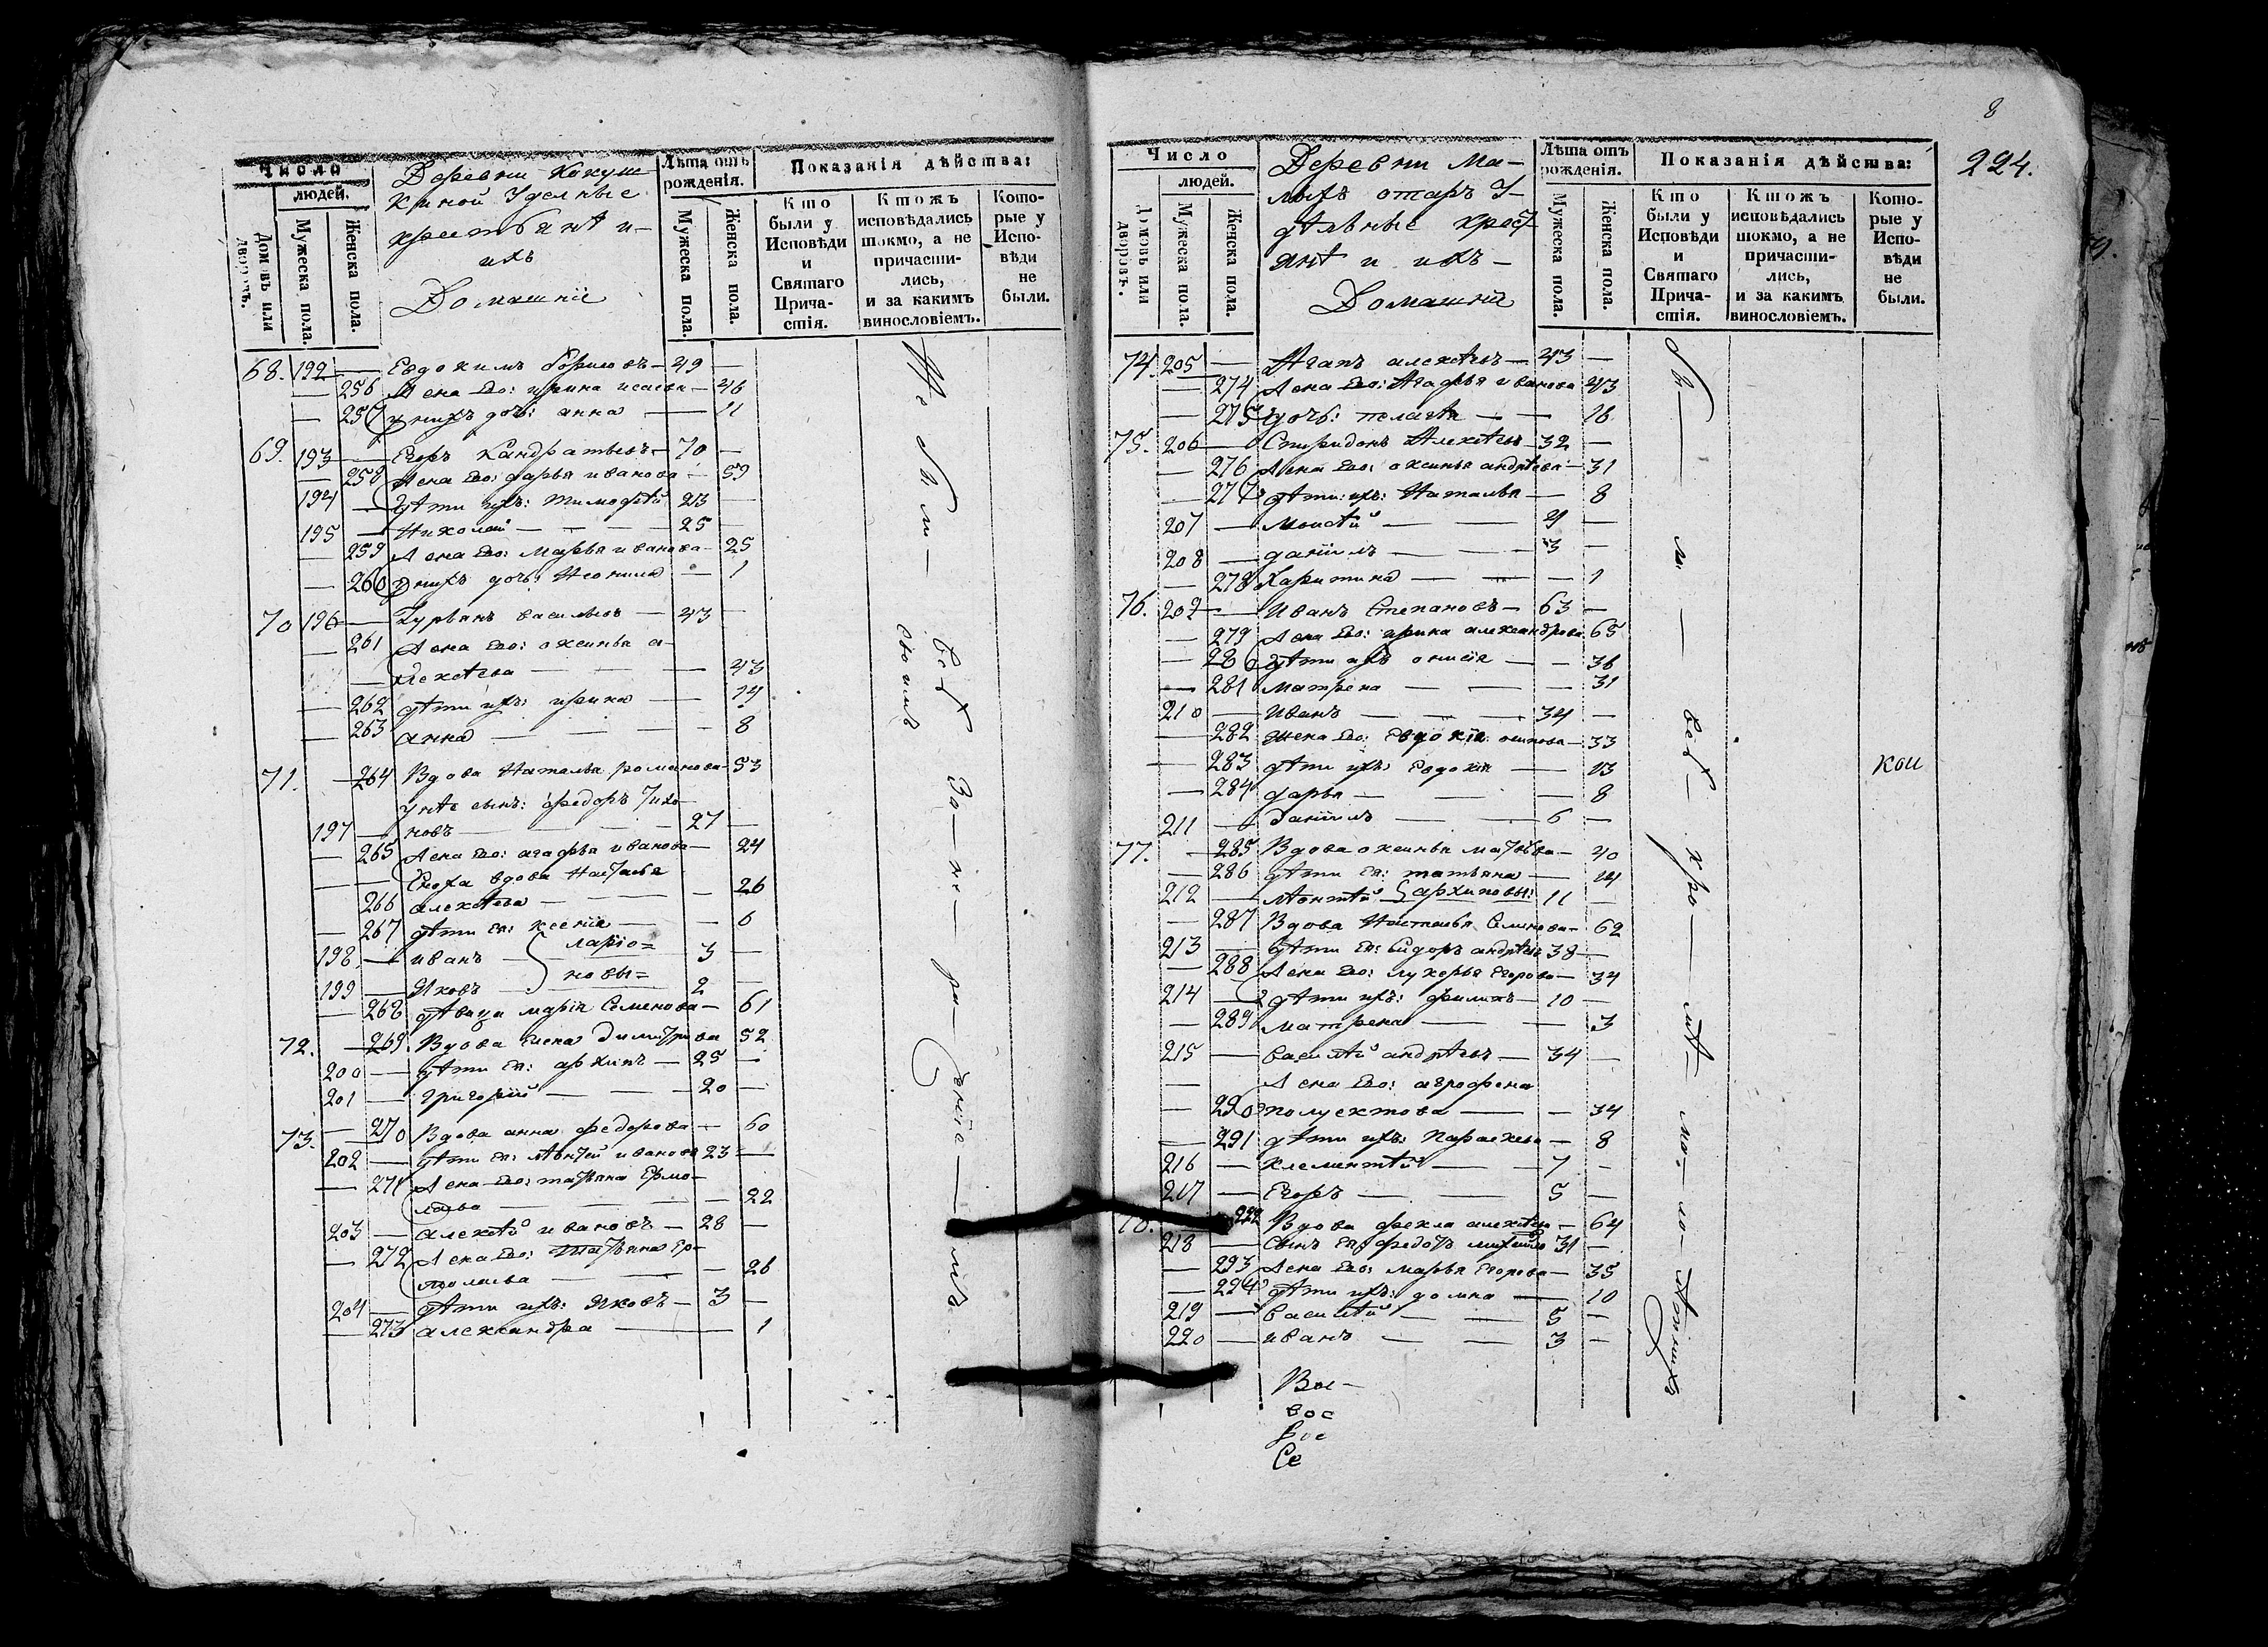 Число
людей.
Домовъ или дворовъ.
Мужеска пола.
Женска пола.
Деревни Кокуш
киной Уделные
крестьянѣ и
ихъ
Домашніе
Лѣта отъ рожденія.
Мужеска пола.
Женска пола.
Показанія дѣйства:
Кто были у Исповѣди и Святаго Причастія.
Ктожъ исповѣдались токмо, а не причастились, и за какимъ винословіемъ.
Которые у Исповѣди не были.
68. 192 — Евдокимъ — 49 —
— 256 Жена Его: ирина исаева — 46
— 257 у нихъ дочь: анна — 11
69. 193 — Егоръ Кандратьевъ — 70 —
— 258 Жена Его: дарья иванова — 59
194 — Дѣти ихъ: Тимофѣй 43 —
195 — Николай — 25 —
— 259 Жена Его: Марья иванова — 25
— 260 у нихъ дочь: Неонила — 1
70 196 — Гурьянъ васильевъ — 43 —
— 261 Жена Его: аксинья а-
— лексѣева — 43
— 262 дѣти ихъ: ирина — 14
— 263 анна — 8
71. — 264 Вдова Наталья романова — 53
у нѣе сынъ: федоръ
197 — новъ — 27 —
— 265 Жена Его: агафья иванова — 24
— — Сноха вдова Наталья
266 алексѣева — 26
— 267 дѣти ея: ксенія — 6
198 — иванъ } ларіо= 3 —
199 — Яковъ новы= 2 —
— 268 дѣвица марія Семенова — 61
72. — 269. Вдова Елена Димитриева 52
200 — дѣти ея: архипъ — 25 —
201 — григорій — 20 —
73. — 270 Вдова анна федорова — 60
202 — дѣти ея: лѣвтей ивановъ 23 —
— 271 Жена Его: татьяна Ермо-
лаева — 22
203 — алексѣй ивановъ — 28 —
— 272 Жена Его: Татьяна Ер-
молаева — 26
204 — дѣти ихъ: Яковъ — 3 —
— 273 александра — 1
всѣ За-не-ра-деніе-мъ
своимъ
8
224.
Число
людей.
Домовъ или дворовъ.
Мужеска пола.
Женска пола.
Деревни Ма-
лыхъ отаръ У-
дѣльные крест
янѣ и ихъ —
Домашнія
Лѣта отъ рожденія.
Мужеска пола.
Женска пола.
Показанія дѣйства:
Кто были у Исповѣди и Святаго Причастія.
Ктожъ исповѣдались токмо, а не причастились, и за какимъ винословіемъ.
Которые у Исповѣди не были.
74. 205 — Агапъ алексѣевъ — 43 —
— 274 Жена Его: Агафья иванова 43
— 275 дочь: пелагѣя — 16
75. 206 — Спиридонъ Алексѣевъ — 32 —
— 276 Жена Его: аксинья андрѣева — 31
— 277 дѣти ихъ: Наталья — 8
207 — Моисѣй — 4 —
208 — даніилъ — 3 —
— 278 Харитина — 1
76. 209 — Иванъ Степановъ — 63 —
— 279 Жена Его: ирина александрова 65
— 280 дѣти ихъ анисія — 36
— 281 матрена — 31
210 — Иванъ — 34 —
— 282 Жена Его: Евдокія осипова — 33
— 283 дѣти ихъ: Евдокія — 13
— 284 дарья — 8
211 — Даніилъ — 6 —
77. — 285 Вдова аксинья матвѣва — 40
— 286 дѣти ея: татьяна — 14
212 — Леонтѣй } архиповы: 11 —
— 287 Вдова Наталья Семенова — 62
213 — дѣти ея: Сидоръ андрѣевъ 38 —
— 288 Жена Его: лукерья Егорова — 34
214 — дѣти ихъ: филипъ — 10 —
— 289 матрена — 3
215 — василѣй андрѣевъ — 34 —
— Жена Его: агрофена
— 290 полуектова — 34
— 291 дѣти ихъ: Параскева — 8
216 — клементѣй — 7 —
217 — Егоръ — 5 —
78. — 292 Вдова фекла алексѣева — 64
218 — Сынъ ея: федотъ михайловъ 31 —
— 293 Жена Его: марья Егорова — 35
— 294 дѣти ихъ: домна — 10
219 — василѣй — 5 —
220 — иванъ — 3 —
Бы — ли — всѣ — кро — мѣ — ма-ло-лѣтнихъ
кои
Вос-
вос
Се